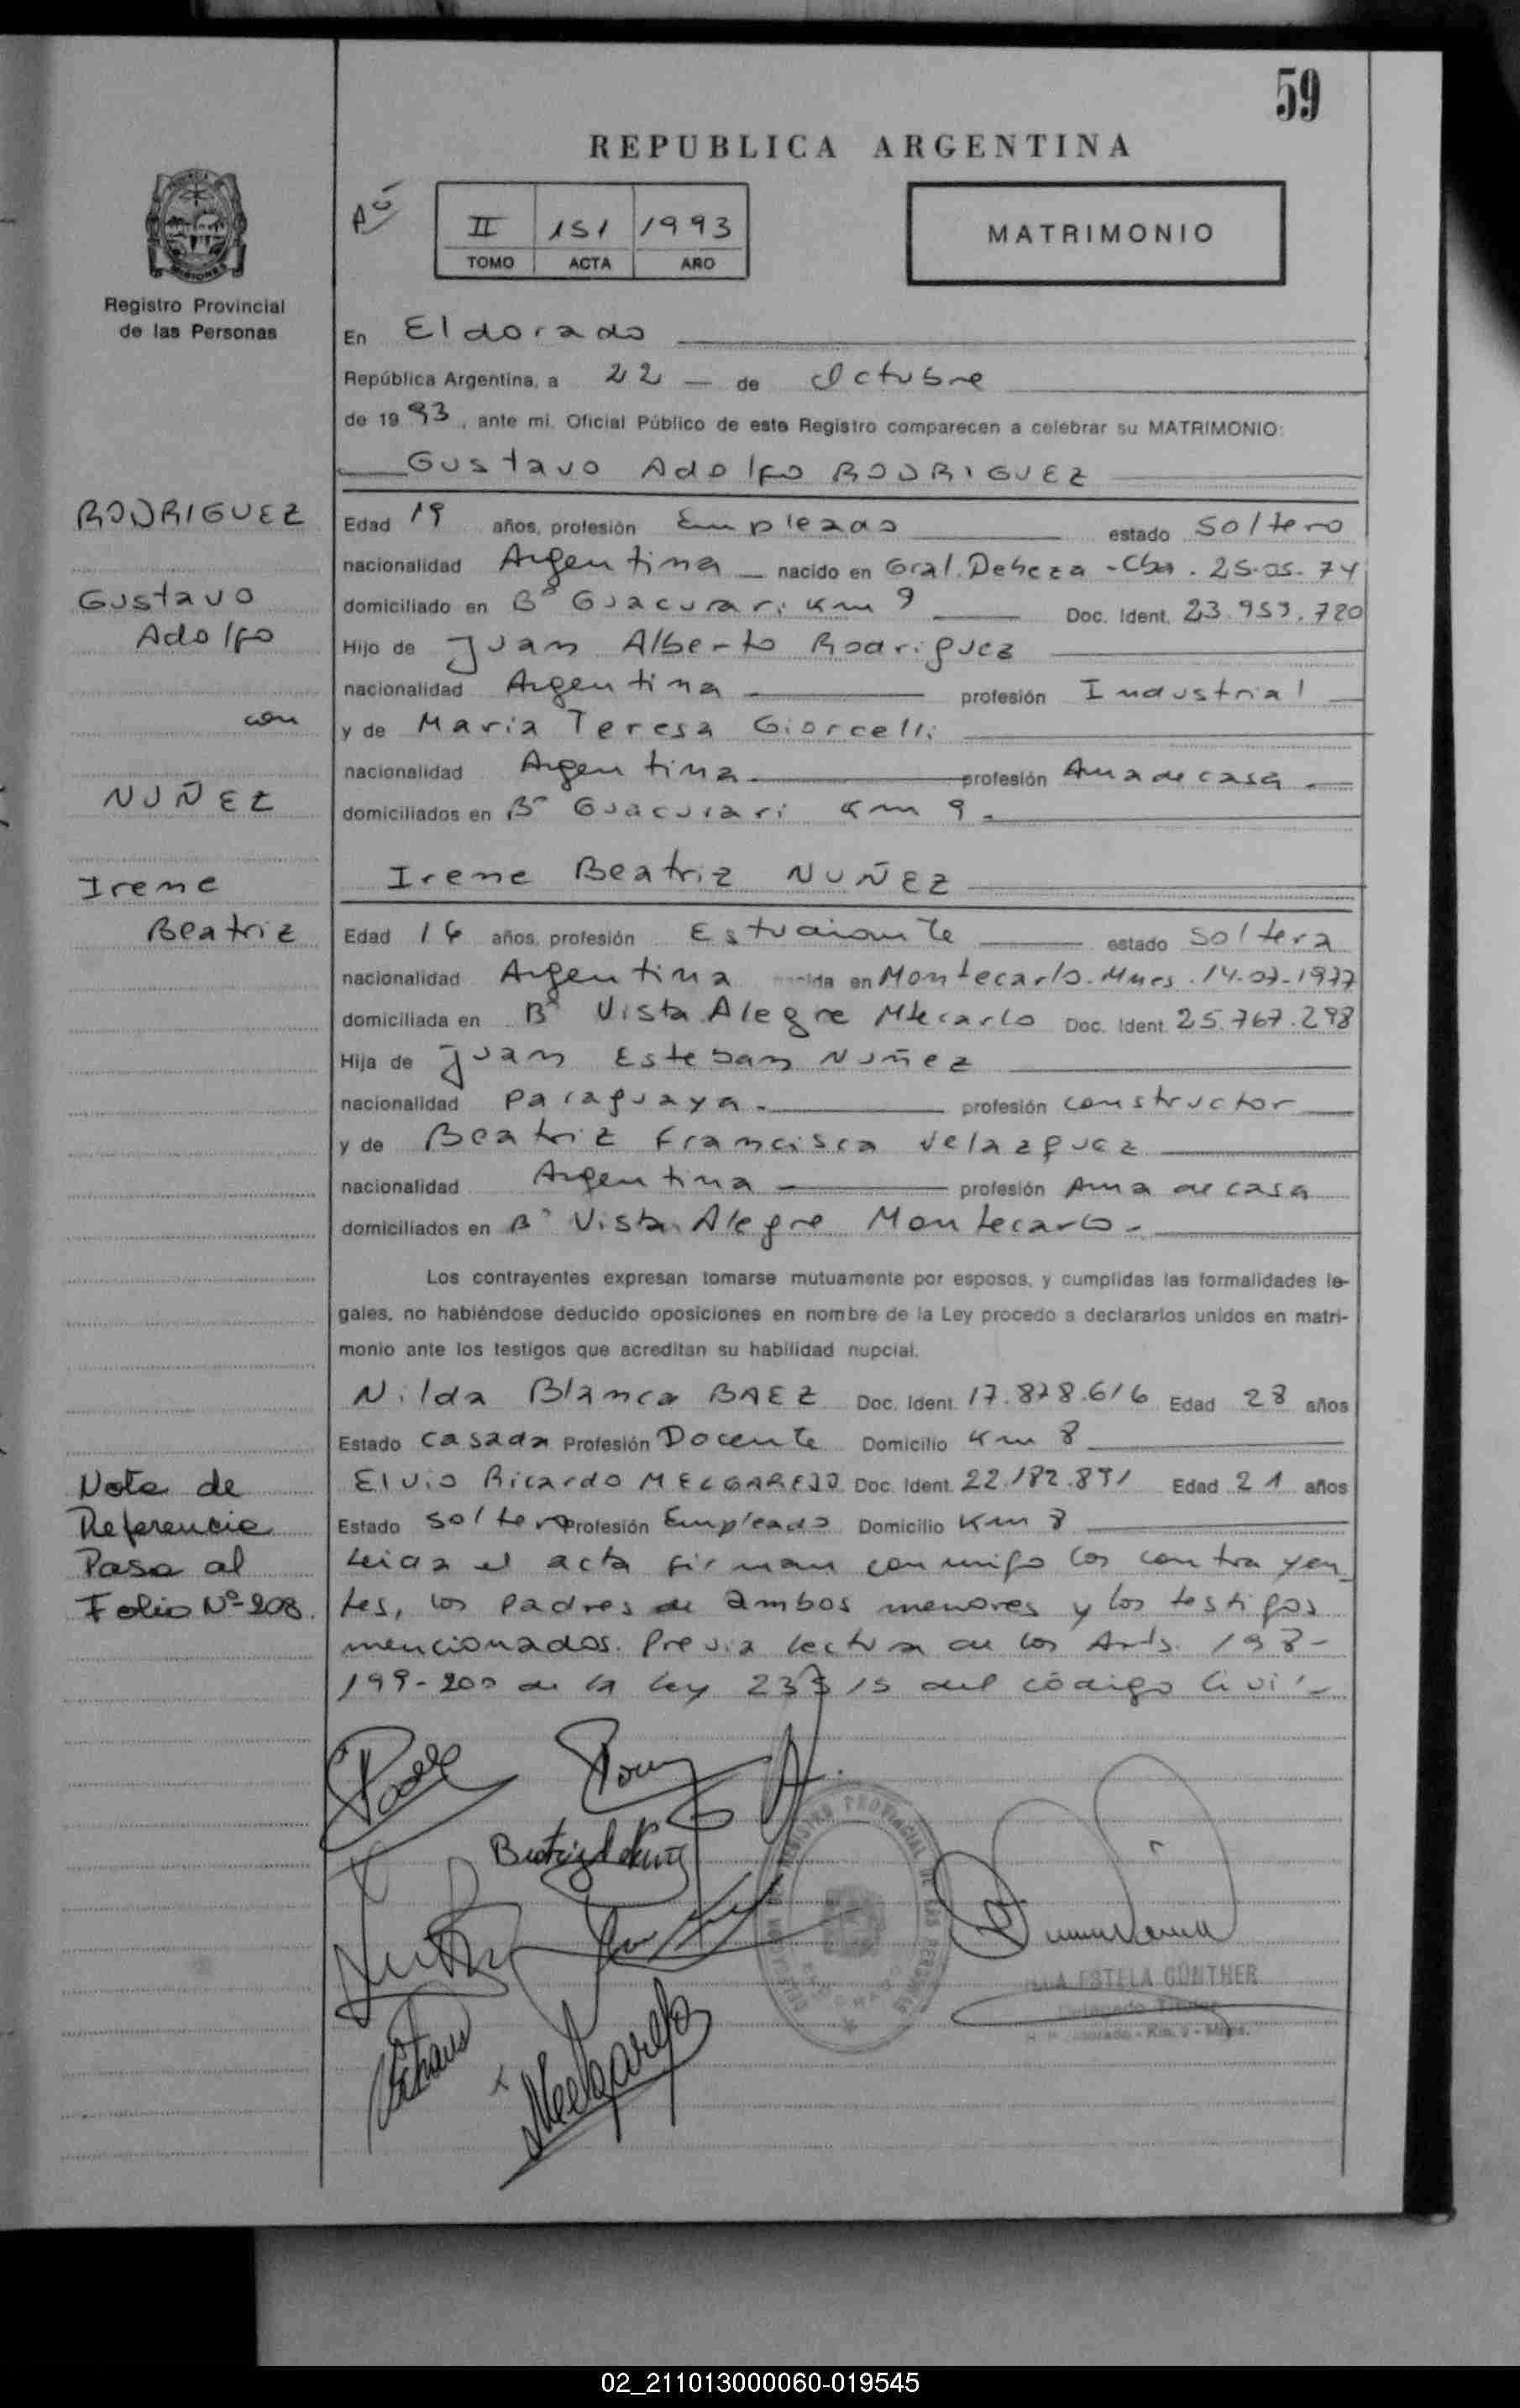 59
REPUBLICA ARGENTINA
II 151 1993
TOMO ACTA AÑO
MATRIMONIO
Registro Provincial
de las Personas
En Eldorado
República Argentina, a 22 — de Octubre
de 1993, ante mi, Oficial Público de este Registro comparecen a celebrar su MATRIMONIO:
Gustavo Adolfo RODRIGUEZ
RODRIGUEZ
Gustavo
Adolfo
con
NUÑEZ
Irene
Beatriz
Edad 19 años, profesión Empleado estado Soltero
nacionalidad Argentina nacido en Gral. Deheza - Cba. 25-05-74
domiciliado en Bº Guacurari Km 9 Doc. Ident. 23.959.720
Hijo de Juan Alberto Rodriguez
nacionalidad Argentina profesión Industrial
y de Maria Teresa Giorcelli
nacionalidad Argentina profesión Ama de casa
domiciliados en Bº Guacurari Km 9.
Irene Beatriz NUÑEZ
Edad 16 años, profesión Estudiante estado Soltera
nacionalidad Argentina nacida en Montecarlo - Mnes. 14-07-1977
domiciliada en Bº Vista Alegre Mtecarlo Doc. Ident. 25.767.298
Hija de Juan Esteban Nuñez
nacionalidad Paraguaya profesión constructor
y de Beatriz Francisca Velazquez
nacionalidad Argentina profesión Ama de casa
domiciliados en Bº Vista Alegre Montecarlo
Los contrayentes expresan tomarse mutuamente por esposos, y cumplidas las formalidades le-
gales, no habiéndose deducido oposiciones en nombre de la Ley procedo a declararlos unidos en matri-
monio ante los testigos que acreditan su habilidad nupcial.
Nilda Blanca BAEZ Doc. Ident. 17.878.616 Edad 28 años
Estado casada Profesión Docente Domicilio Km 8
Elvio Ricardo MELGAREJO Doc. Ident. 22.182.891 Edad 21 años
Estado soltero Profesión Empleado Domicilio Km 8
Leida el acta firman conmigo los contrayen
tes, los padres de ambos menores y los testigos
mencionados. Previa lectura de los Arts. 198-
199-200 de la ley 23515 del código Civil
Nota de
Referencia
Pasa al
Folio Nº 208.
Beatriz de Nuñez
Melgarejo
REGISTRO PROVINCIAL DE LAS PERSONAS
ELDORADO
ESTELA GÜNTHER
Delegado Titular
Eldorado - Km. 9 - Mnes.
02_211013000060-019545